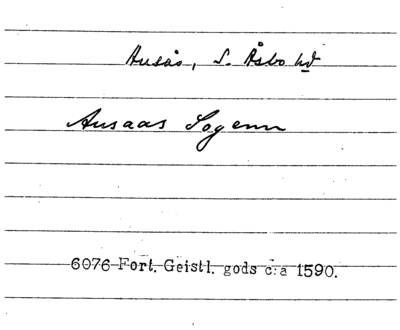 Ausås, S. Åsbo hd
Ausaas Sogenn
6076 Fort. Geistl. gods c:a 1590.